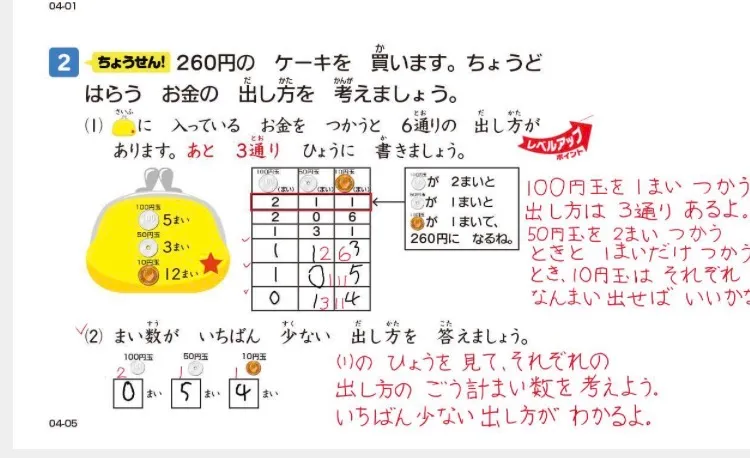 04-01
2 ちょうせん! 260円の ケーキを 買います。ちょうど
はらう お金の 出し方を 考えましょう。
(1) に 入っている お金を つかうと 6通りの 出し方が
あります。あと 3通り ひょうに 書きましょう。
レベルアップ
ポイント
100円玉 5まい
50円玉 3まい
10円玉 12まい
100円玉 (まい) 50円玉 (まい) 10円玉 (まい)
2 1 1
2 0 6
1 3 1
1 1 2 6 3
1 0 1 11 5
0 1 3 11 4
が 2まいと
が 1まいと
が 1まいで、
260円に なるね。
100円玉を 1まい つかう
出し方は 3通り あるよ。
50円玉を 2まい つかう
ときと 1まいだけ つかう
とき、10円玉は それぞれ
なんまい 出せば いいかな
(2) まい数が いちばん 少ない 出し方を 答えましょう。
100円玉 50円玉 10円玉
2 1 1
0 まい 5 まい 4 まい
(1)の ひょうを 見て、それぞれの
出し方の ごう計まい数を 考えよう。
いちばん少ない 出し方が わかるよ。
04-05